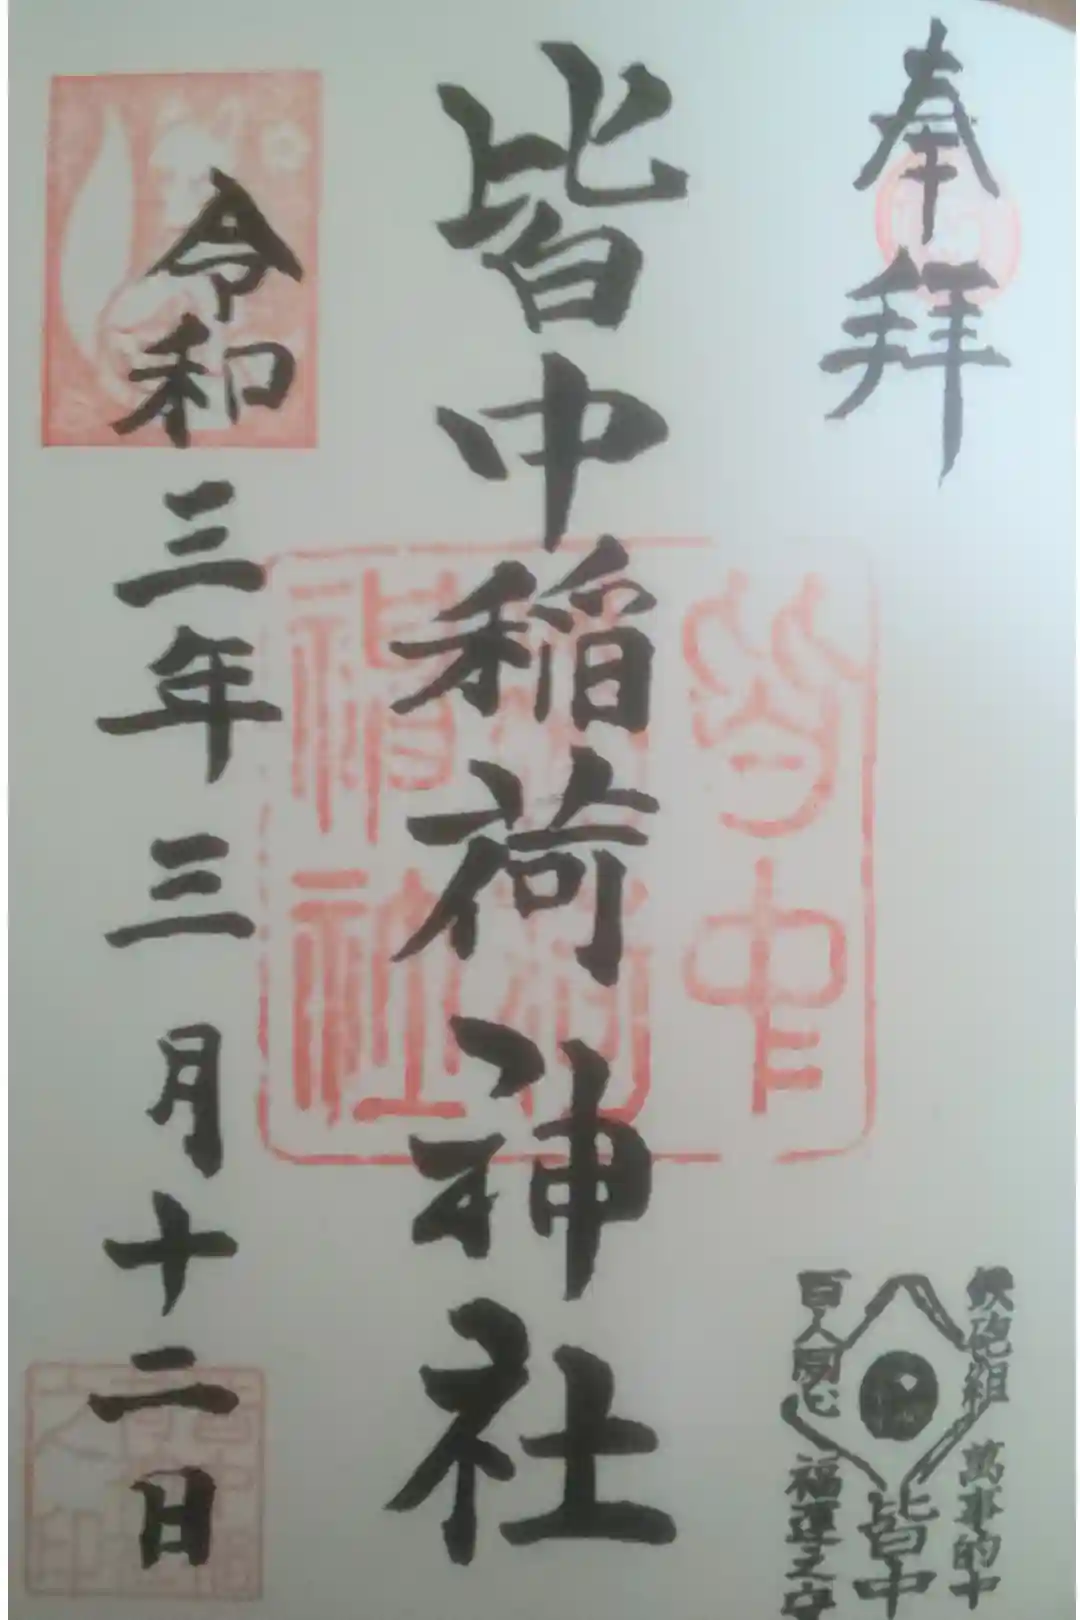 奉拝
皆中稲荷神社
令和三年三月十二日
皆中稲荷神社
鉄砲組
百人同心
萬事的中
皆中
福運之守